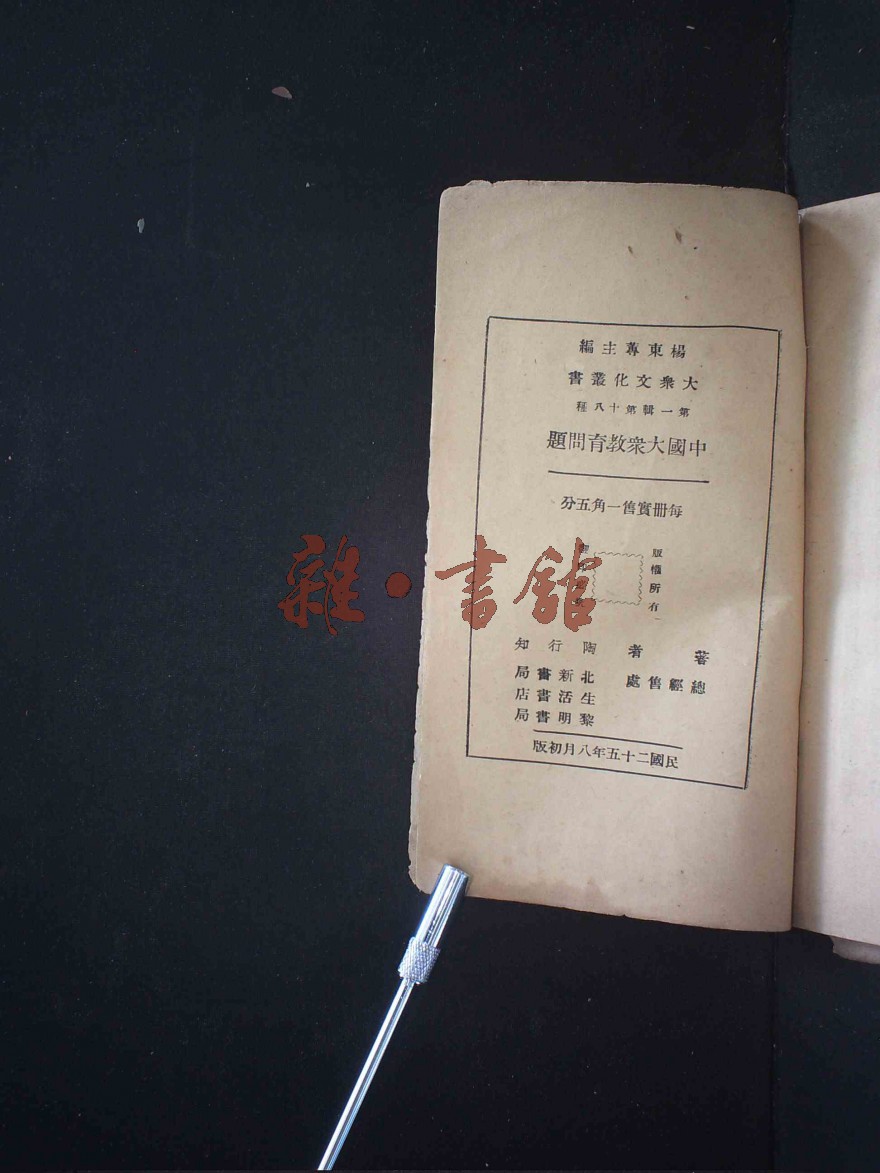 楊東蓴主編
大衆文化叢書
第一輯第十八種
中國大衆教育問題
每冊實售一角五分
版權所有
著者 陶行知
總經售處 北新書局
生活書店
黎明書局
民國二十五年八月初版
雜·書館